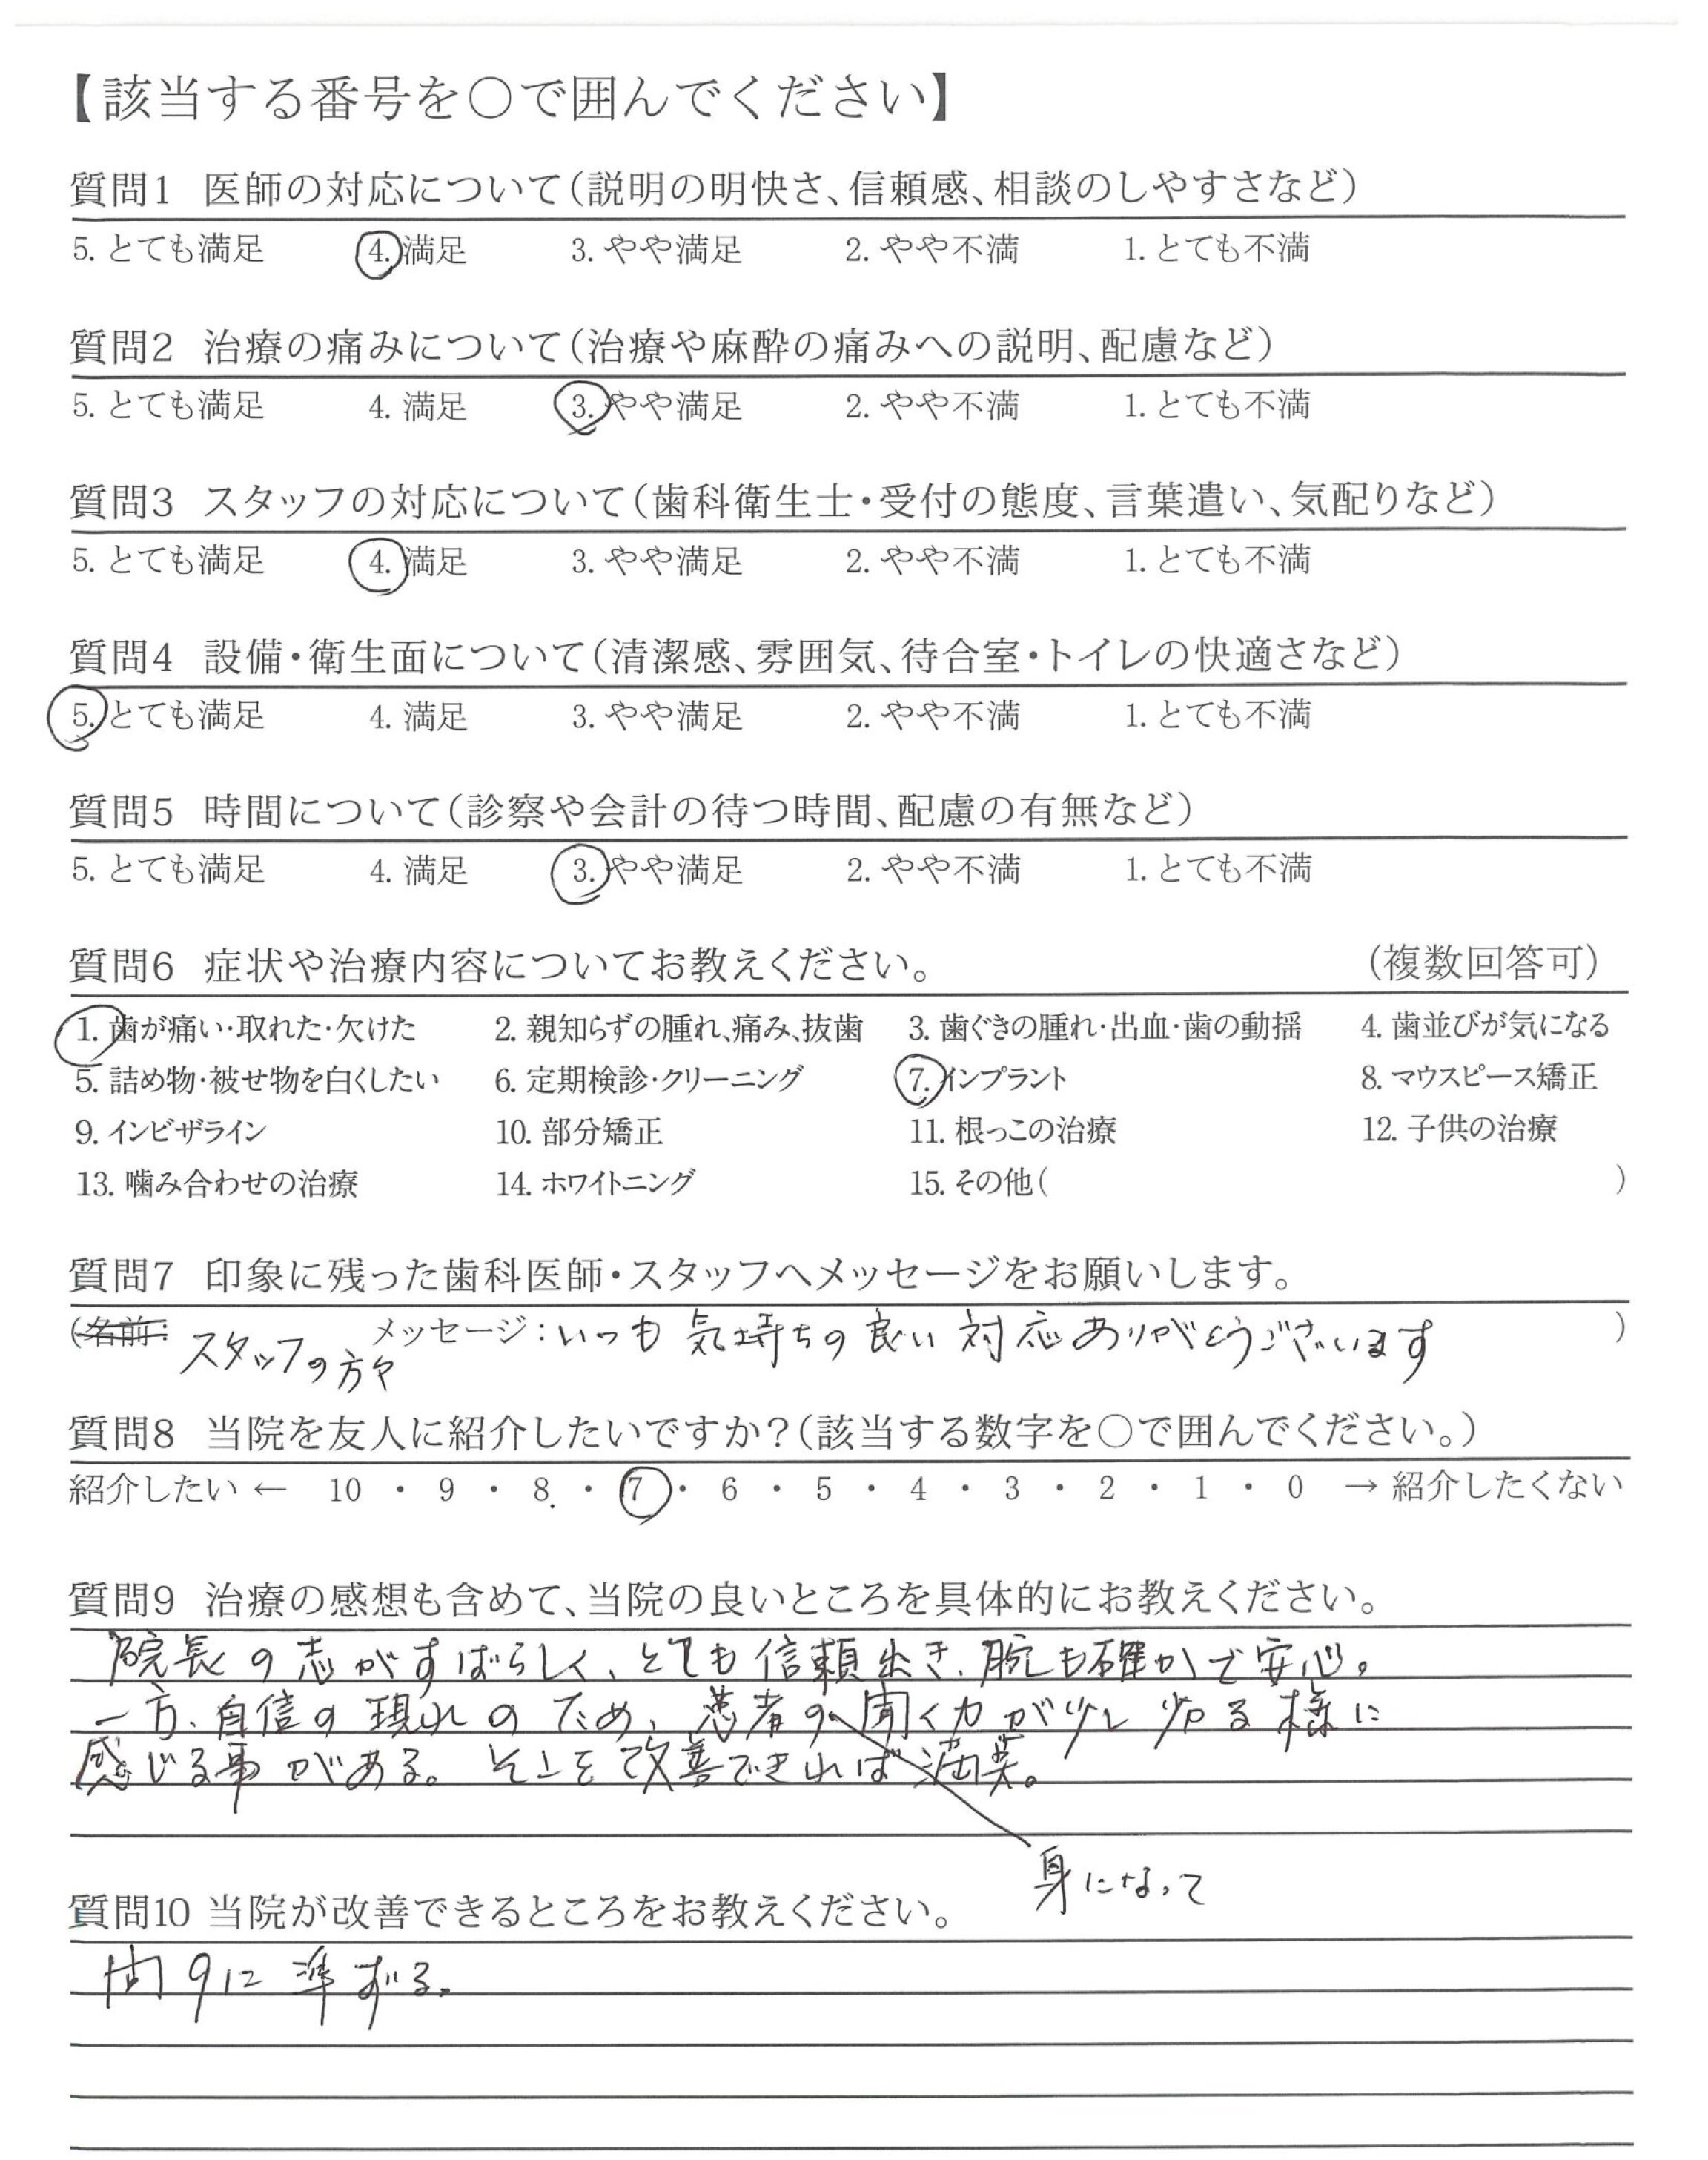 【該当する番号を○で囲んでください】
質問1 医師の対応について(説明の明快さ、信頼感、相談のしやすさなど)
5. とても満足 4. 満足 3. やや満足 2. やや不満 1. とても不満
質問2 治療の痛みについて(治療や麻酔の痛みへの説明、配慮など)
5. とても満足 4. 満足 3. やや満足 2. やや不満 1. とても不満
質問3 スタッフの対応について(歯科衛生士・受付の態度、言葉遣い、気配りなど)
5. とても満足 4. 満足 3. やや満足 2. やや不満 1. とても不満
質問4 設備・衛生面について(清潔感、雰囲気、待合室・トイレの快適さなど)
5. とても満足 4. 満足 3. やや満足 2. やや不満 1. とても不満
質問5 時間について(診察や会計の待つ時間、配慮の有無など)
5. とても満足 4. 満足 3. やや満足 2. やや不満 1. とても不満
質問6 症状や治療内容についてお教えください。 (複数回答可)
1. 歯が痛い・取れた・欠けた 2. 親知らずの腫れ、痛み、抜歯 3. 歯ぐきの腫れ・出血・歯の動揺 4. 歯並びが気になる
5. 詰め物・被せ物を白くしたい 6. 定期検診・クリーニング 7. インプラント 8. マウスピース矯正
9. インビザライン 10. 部分矯正 11. 根っこの治療 12. 子供の治療
13. 噛み合わせの治療 14. ホワイトニング 15. その他( )
質問7 印象に残った歯科医師・スタッフへメッセージをお願いします。
(名前: スタッフの方々 メッセージ:いつも気持ちの良い対応ありがとうございます )
質問8 当院を友人に紹介したいですか?(該当する数字を○で囲んでください。)
紹介したい ← 10 ・ 9 ・ 8 ・ 7 ・ 6 ・ 5 ・ 4 ・ 3 ・ 2 ・ 1 ・ 0 → 紹介したくない
質問9 治療の感想も含めて、当院の良いところを具体的にお教えください。
院長の志がすばらしく、とても信頼出き、腕も確かで安心。
一方、自信の現れのため、患者の聞く力が少し劣る様に
感じる事がある。そこを改善できれば満点。
身になって
質問10 当院が改善できるところをお教えください。
問9に準ずる。